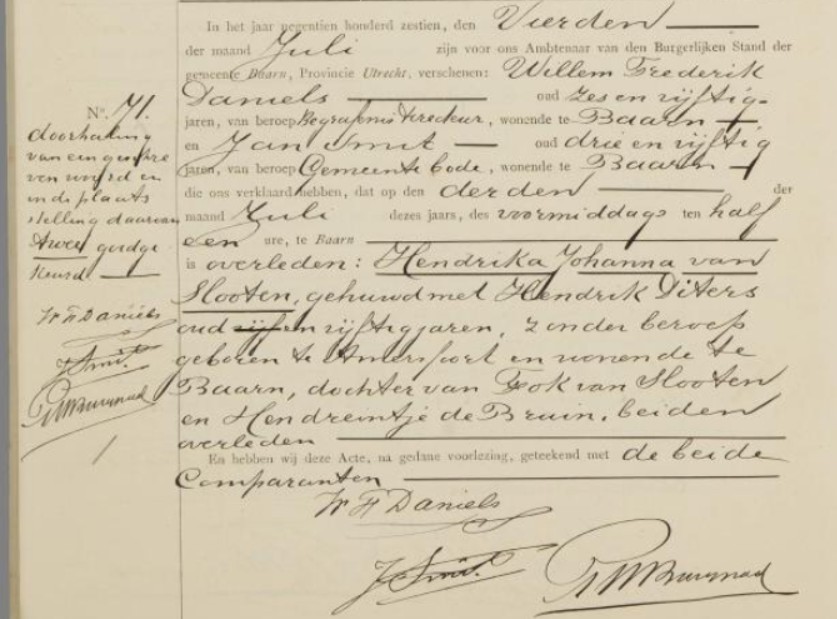 In het jaar negentien honderd zestien, den Vierden
der maand Juli zijn voor ons Ambtenaar van den Burgerlijken Stand der
gemeente Baarn, Provincie Utrecht, verschenen: Willem Frederik
Daniels oud zes en vijftig
jaren, van beroep Begrafenis directeur, wonende te Baarn
en Jan Smit oud drie en vijftig
jaren, van beroep Gemeente bode, wonende te Baarn
die ons verklaard hebben, dat op den derden der
maand Juli dezes jaars, des voormiddags ten half
een ure, te Baarn
is overleden: Hendrika Johanna van
Slooten, gehuwd met Hendrik Diters
oud vijf en vijftig jaren, zonder beroep
geboren te Amersfoort en wonende te
Baarn, dochter van Fok van Slooten
en Hendreintje de Bruin, beiden
overleden
En hebben wij deze Acte, na gedane voorlezing, geteekend met de beide
Comparanten
W F Daniels
J Smit.
No. 71.
doorhaling
van een geschre
ven woord en
in de plaats
stelling daarvan
twee goedge
keurd
W F Daniels
J Smit.